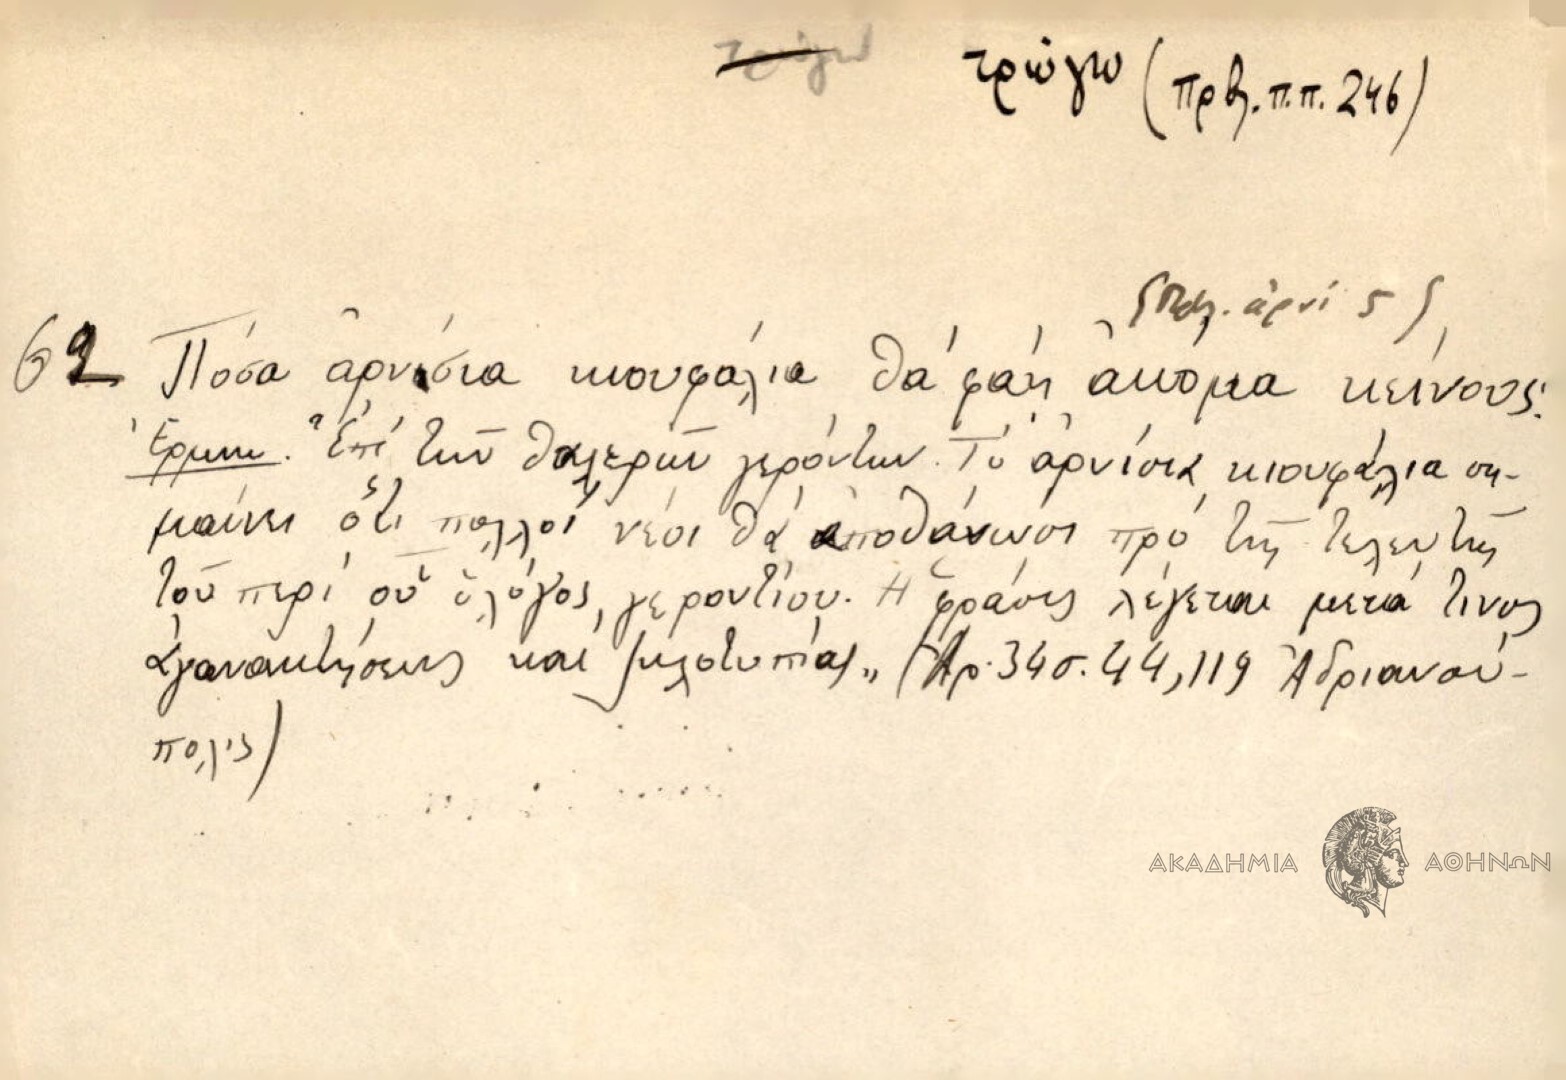 τρώγω
τρώγω (Πρβλ. π.π. 246)
{Πρβλ. ἀρνί 5}
62 Πόσα ἀρνίσια κιουφάλια θά φάῃ ἀκόμα κείνους;
Ἑρμην. "Ἐπί τῶν θαλερῶν γερόντων. Τό ἀρνίσια κιουφάλια ση-
μαίνει ὅτι πολλοί νέοι θά ἀποθάνωσι πρό τῆς τελευτῆς
τοῦ περί οὗ ὁ λόγος γεροντίου. Ἡ φράσις λέγεται μετά τινος
ἀγανακτήσεως καί ζηλοτυπίας„ (Ἀρ. 34 σ. 44, 119 Ἀδριανού-
πολις)
ΑΚΑΔΗΜΙΑ ΑΘΗΝΩΝ